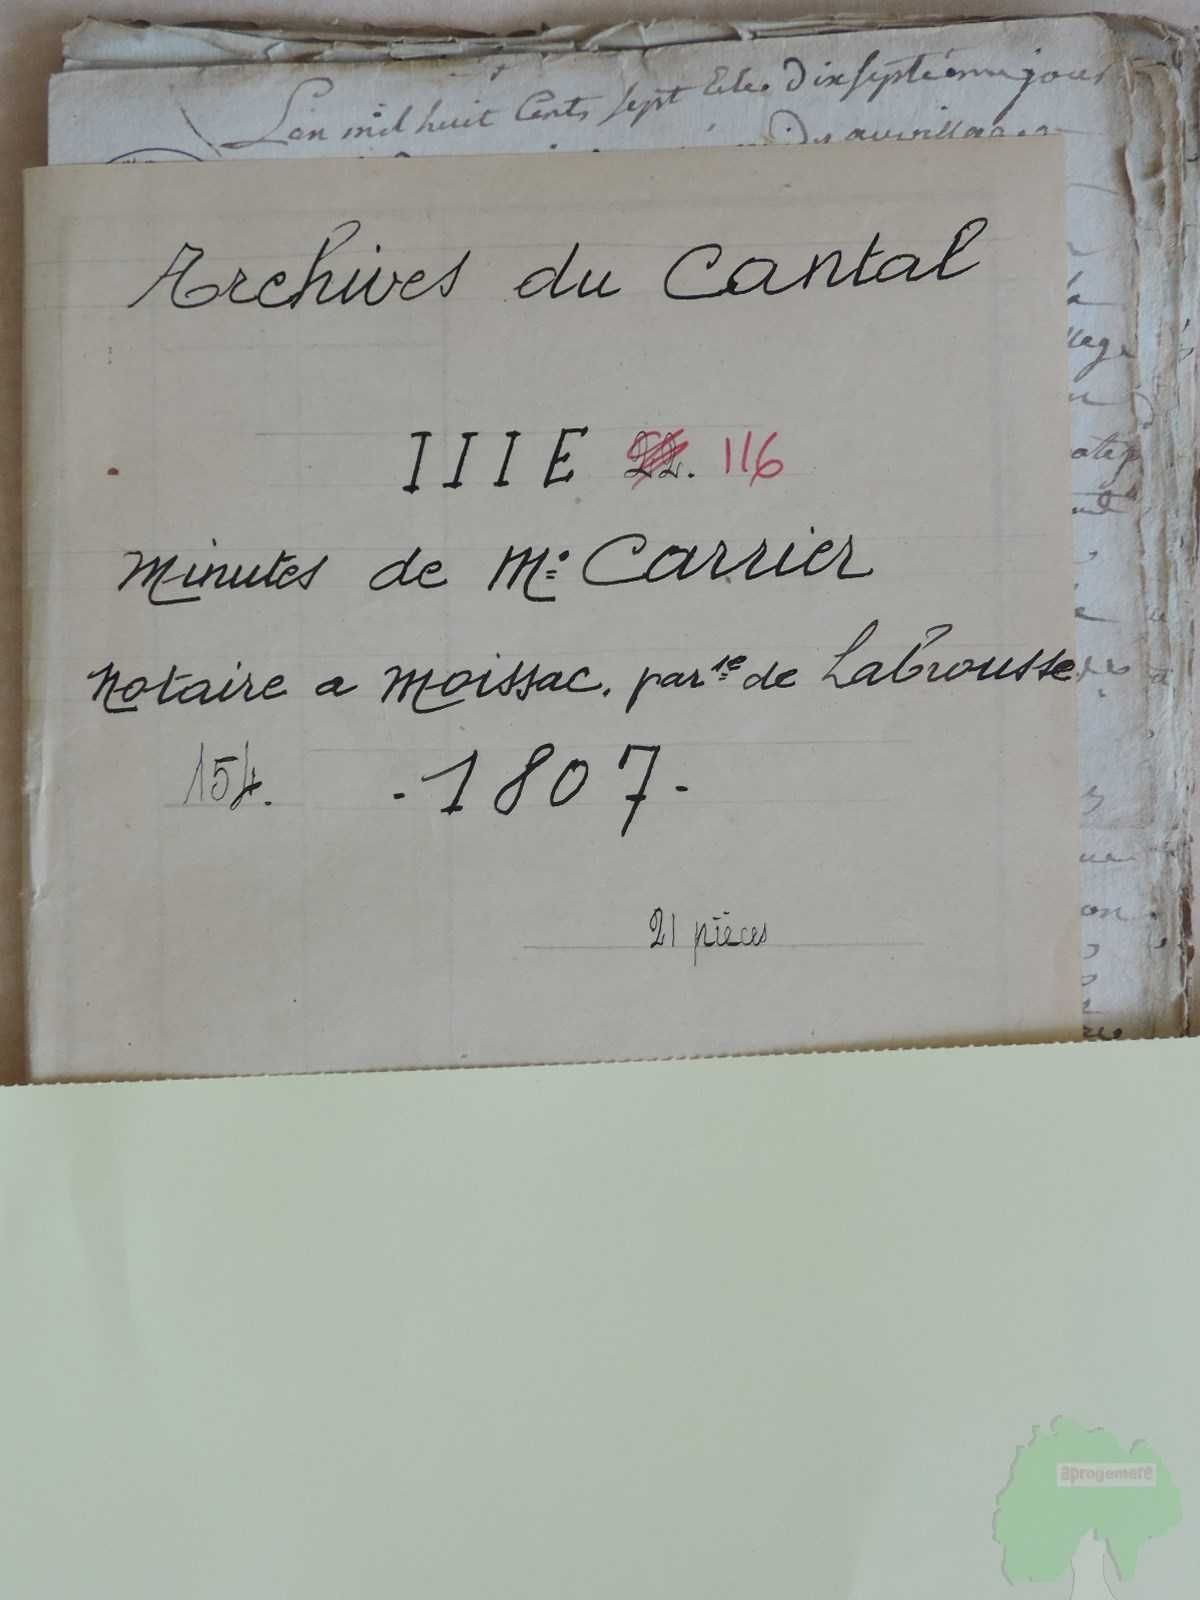 L'an mil huit Cents sept et le dix septième jour
Archives du Cantal
III E 22. 116
Minutes de Me Carrier
Notaire a Moissac, parse de Labrousse
154. - 1807 -
21 pièces
aprogemere